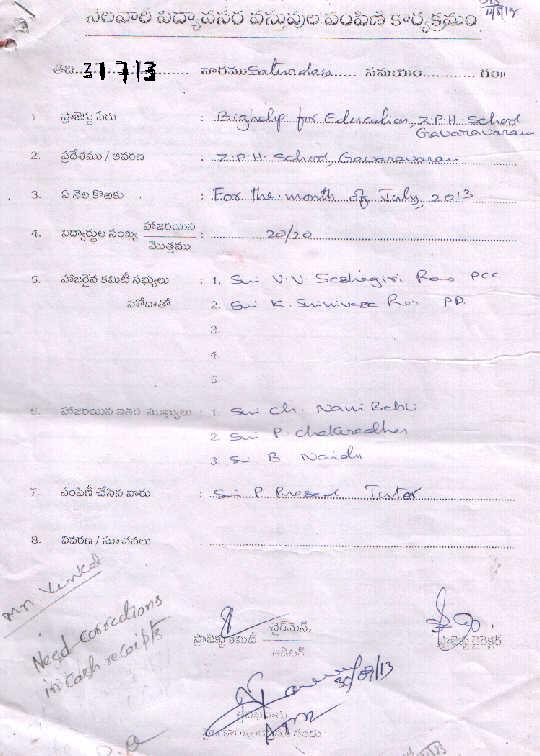 నెలవారి విద్యావసర వస్తువుల పంపిణి కార్యక్రమం
తేది 31 7 13 వారము Saturday సమయం గం॥
1 ప్రాజెక్టు పేరు : Bighelp for Education, Z.P.H. School
Gavaravaram
2. ప్రదేశము / ఆవరణ : Z.P.H. School, Gavaravaram
3. ఏ నెల కొఱకు : For the month of July, 2013
4. విద్యార్థుల సంఖ్య హాజరయిన : 20/20
మొత్తము
5. హాజరైన కమిటి సభ్యులు : 1. Sri V.V Seshagiri Rao PCC
2. Sri K. Srinivasa Rao PD.
3.
4.
5.
6. హాజరయిన ఇతర ముఖ్యులు : 1. Sri Ch. Nani Babu
2. Sri P. Chakradhar
3. Sri B Naidu
7. పంపిణీ చేసిన వారు : Sri P. Prasad Tutor
8. వివరణ / సూచనలు
Mr. Venkat
Need corrections
in Cash receipts
ప్రాజెక్టు కమిటి ఛైర్మెన్,
ప్రాజెక్టు డైరెక్టర్